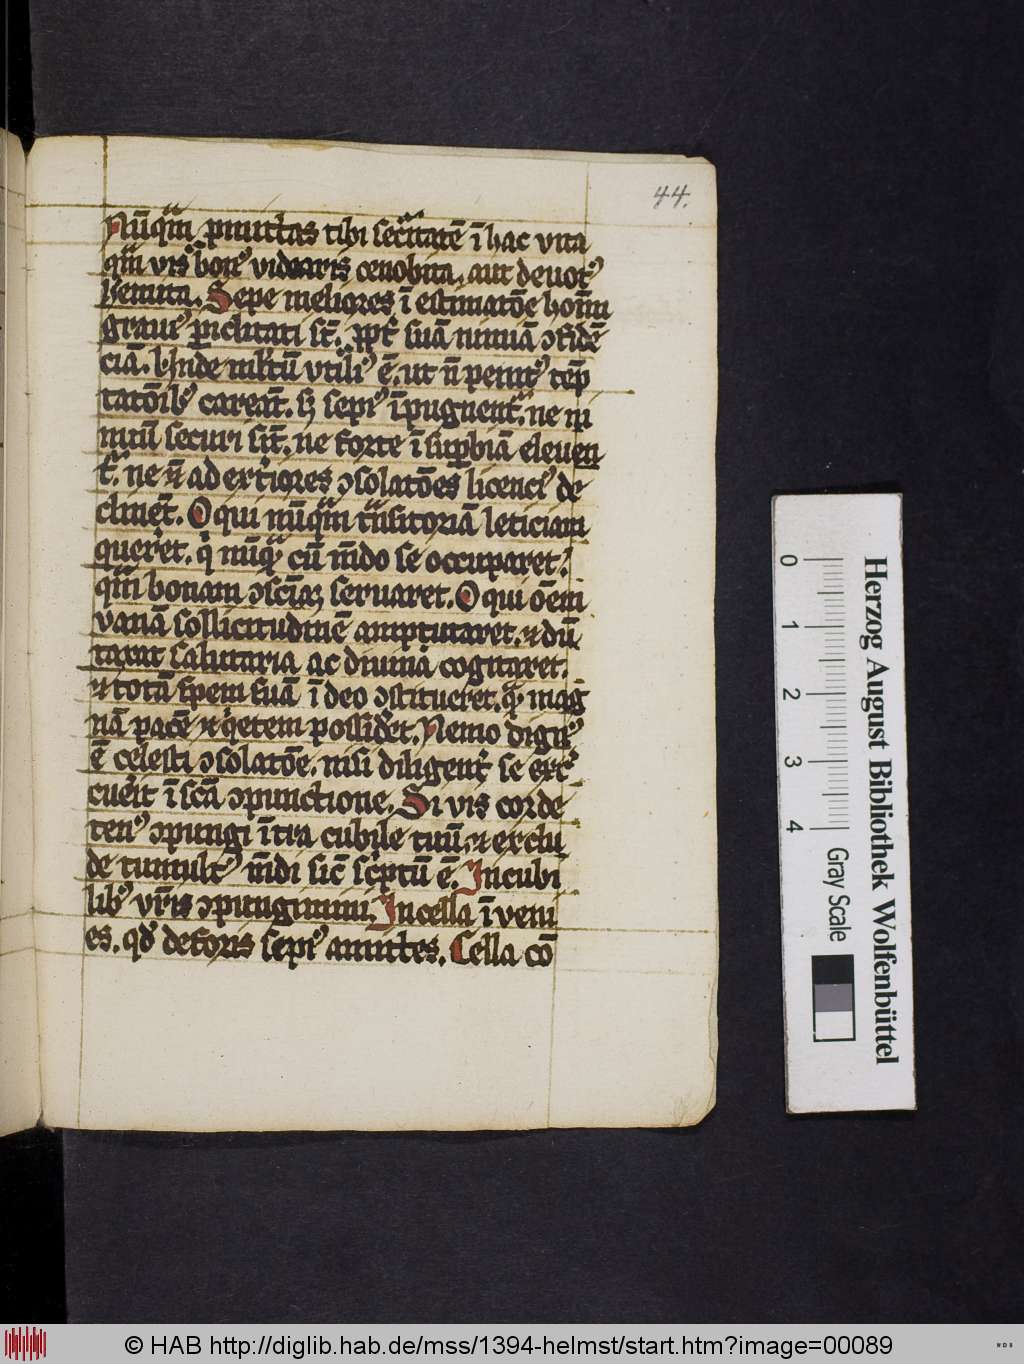 44.
Nūqͣm ꝓmittas tibi sec̾itatē ī hac vita
qͣm vis bonꝰ videaris cenobita, aut deuotꝰ
h̾emita. Sepe meliores ī estimatōe hoīm
grauiꝰ ꝑiclitati st̄. ꝓpt̾ suā nimiā ꝯfidē
ciā. Vnde ml̾tū vtiliꝰ ē. ut n̄ penitꝰ tēp
tatōibꝰ careāt. sꝫ sepiꝰ īpugnent᷑. ne ni
miū securi sīt. ne forte ī suꝑbiā eleuen
t᷑. ne ⁊̄ ad ext̾iores ꝯsolatōes licenciꝰ de
clinēt. O qui nūqͣm tͣnsitoriā leticiam
quer̾et. qͥ nūqͣ cū mūdo se occuparet.
qͣm bonam ꝯsciaꝫ seruaret. O qui oēm
vanā sollicitudinē amputaret. ⁊ dū
taxat salutaria ac diuina cogitaret.
⁊ totā spem suā ī deo ꝯstitueret. qͣ mag
nā pacē ⁊ qͥetem possider̾t. Nemo dignꝰ
ē celesti ꝯsolatōe. nisi diligent̾ se ex̾
cu̾it ī scā ꝯpunctione. Si vis corde
tenꝰ ꝯpungi ītra cubile tuū. ⁊ exclu
de tumultꝰ mūdi sic̄ sc̾ptū ē. In cubi
libꝰ vr̄is ꝯpungimini. In cella īveni
es. qd̾ deforis sepiꝰ amittes. Cella cō
Herzog August Bibliothek Wolfenbüttel
0 1 2 3 4
Gray Scale
© HAB http://diglib.hab.de/mss/1394-helmst/start.htm?image=00089